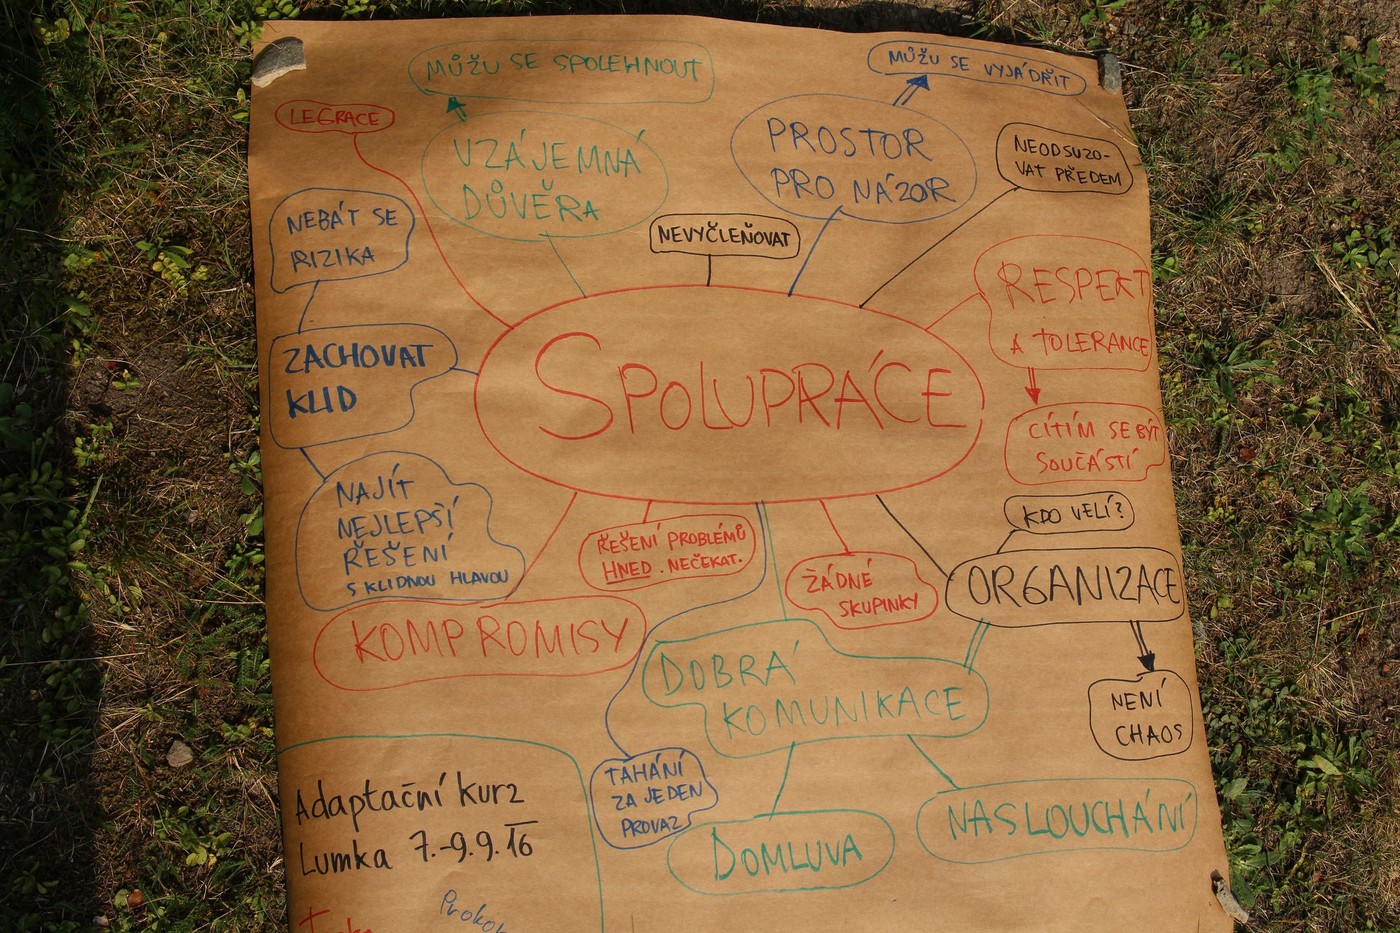 MŮŽU SE SPOLEHNOUT
MŮŽU SE VYJÁDŘIT
LEGRACE
VZÁJEMNÁ
DŮVĚRA
PROSTOR
PRO NÁZOR
NEODSUZO-
VAT PŘEDEM
NEBÁT SE
RIZIKA
NEVYČLEŇOVAT
RESPEKT
A TOLERANCE
ZACHOVAT
KLID
SPOLUPRÁCE
CÍTÍM SE BÝT
SOUČÁSTÍ
NAJÍT
NEJLEPŠÍ
ŘEŠENÍ
S KLIDNOU HLAVOU
KDO VELÍ?
ŘEŠENÍ PROBLÉMŮ
HNED. NEČEKAT.
ŽÁDNÉ
SKUPINKY
ORGANIZACE
KOMPROMISY
DOBRÁ
KOMUNIKACE
NENÍ
CHAOS
TAHÁNÍ
ZA JEDEN
PROVAZ
DOMLUVA
NASLOUCHÁNÍ
Adaptační kurz
Lumka 7.-9.9.16